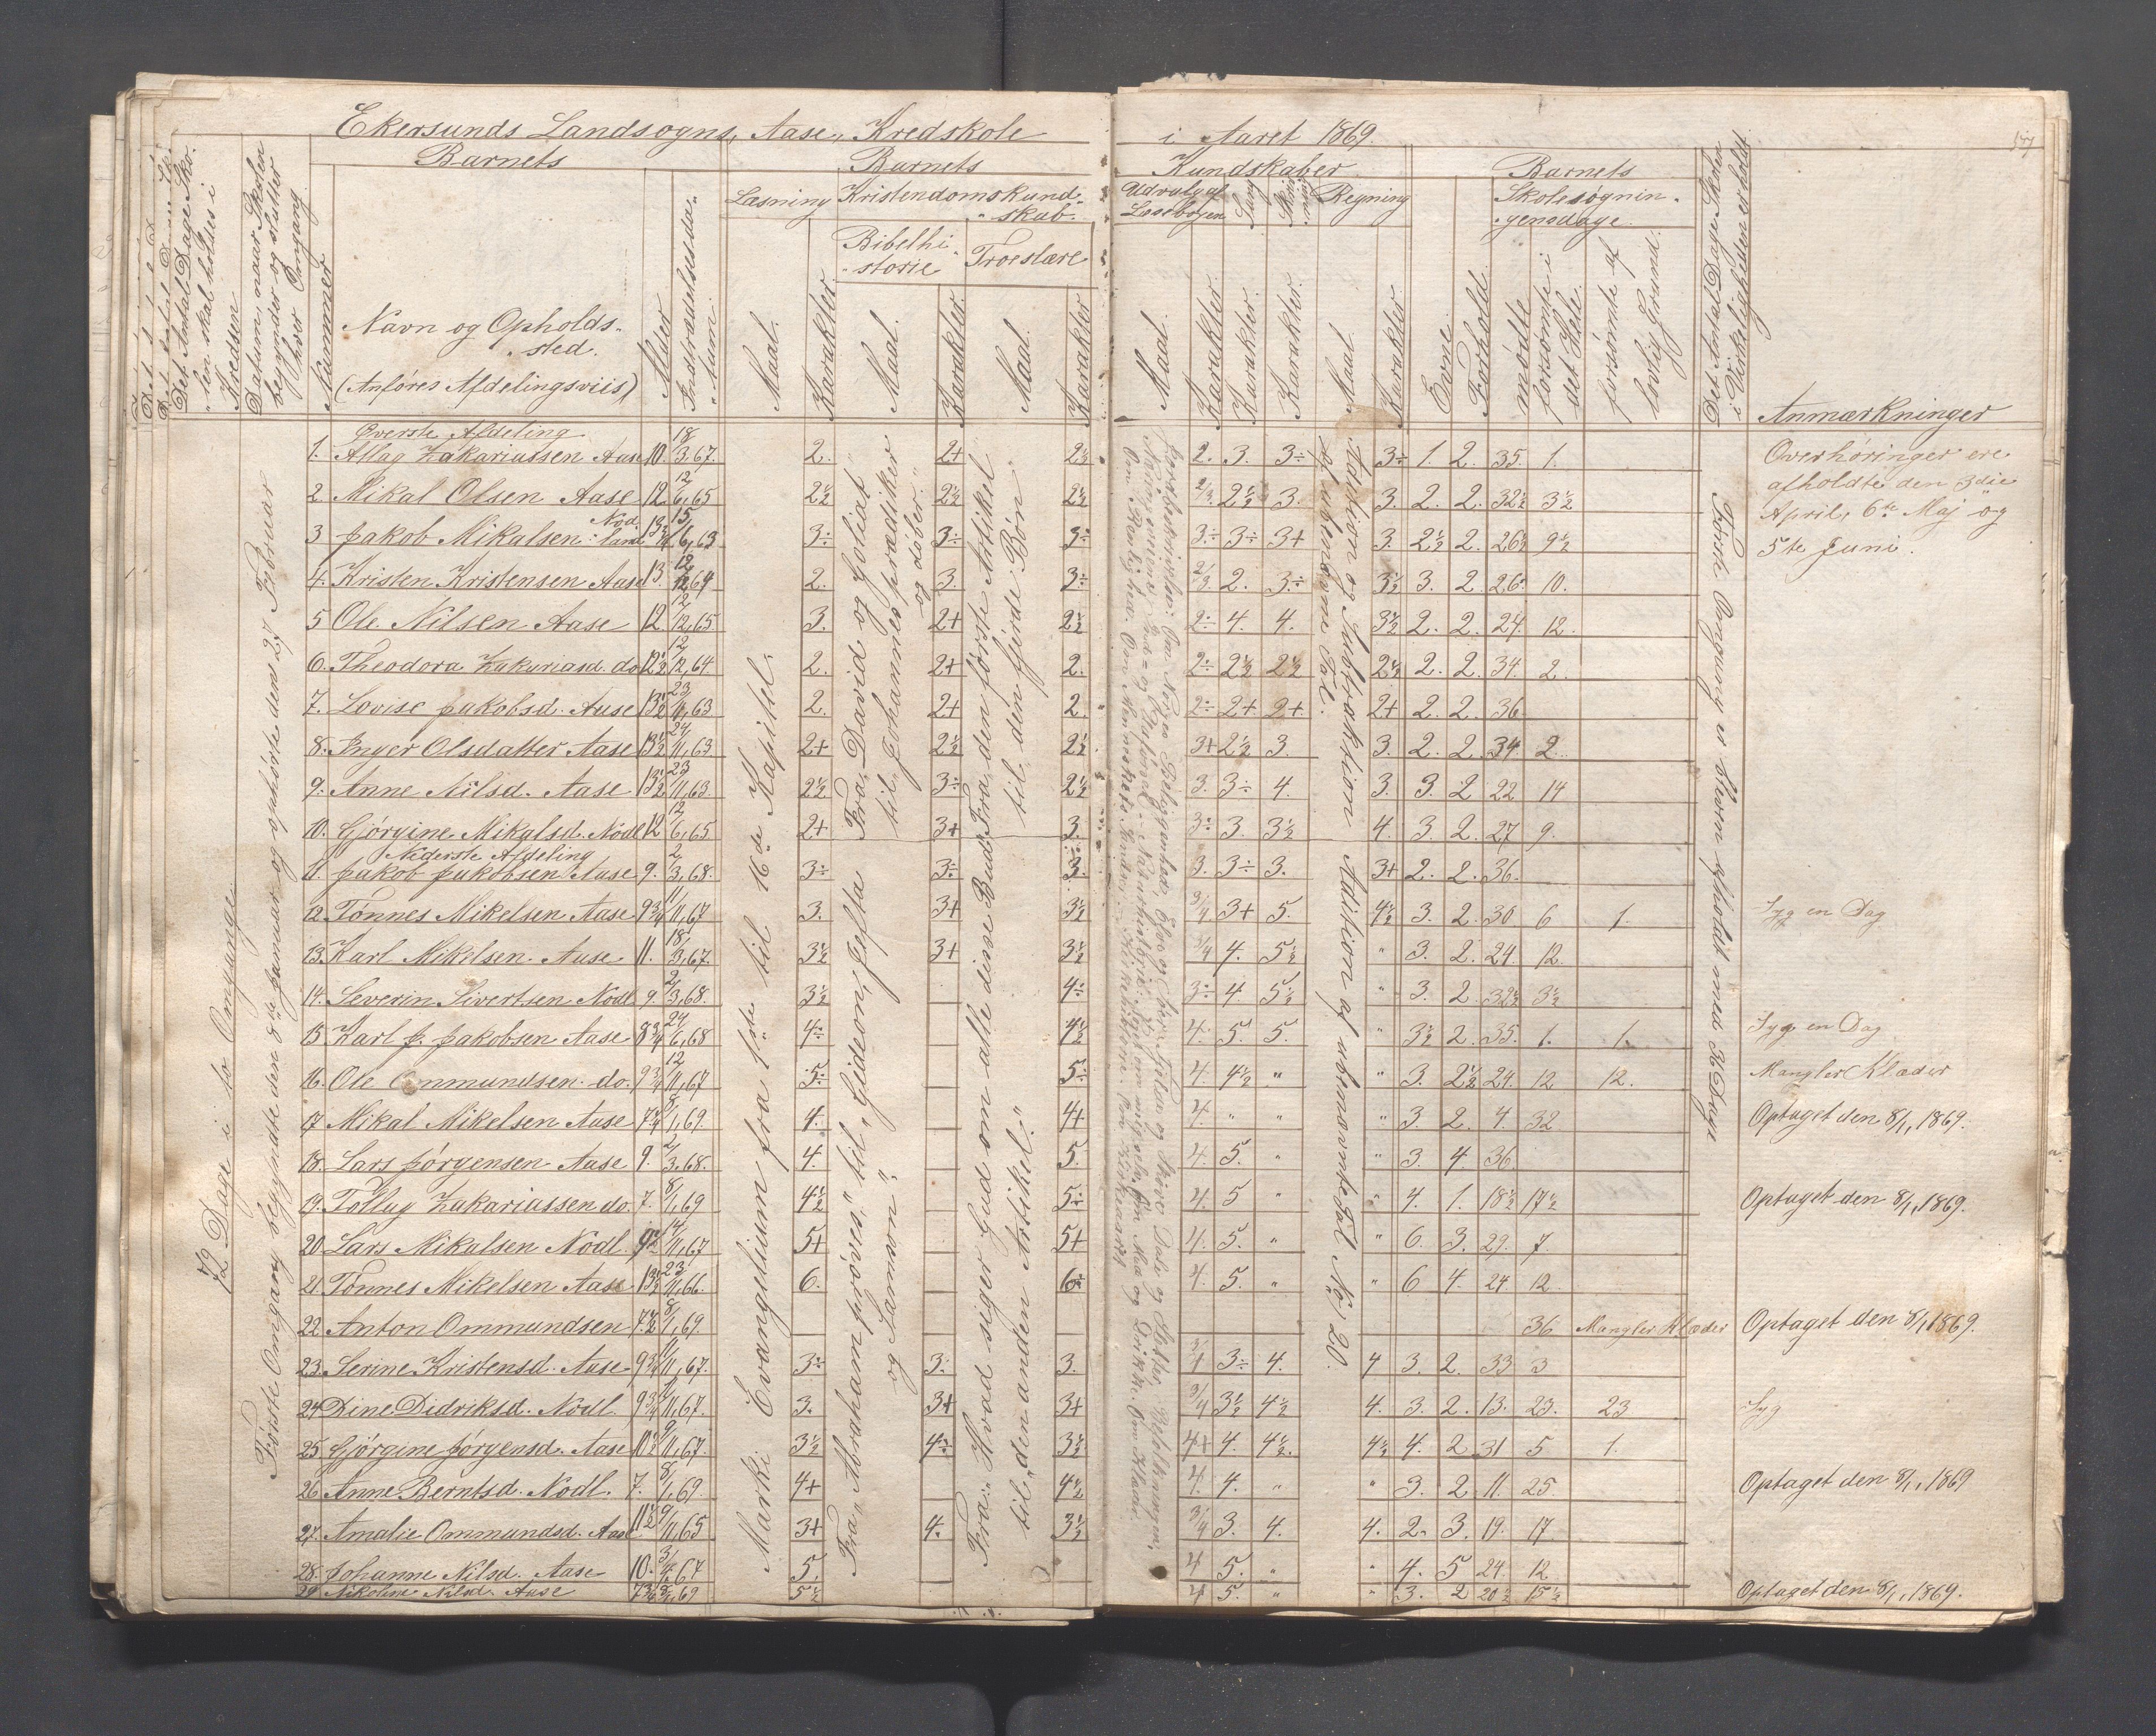 Ekersunds Landsogns, Aase, Kredskole i Aaret 1869.
Det Antal Dage Sko-
len skal holdes i
Kredsen
Datum, naar Skolen
begynder og slutter
hver Omgang
Nummer
Barnets
Navn og Opholds-
sted.
(Anføres Afdelingsviis)
Alder
Indtrædelsesda-
tum.
Læsning
Maal.
Karakter.
Barnets
Kristendomskund-
skab.
Bibelhi-
storie
Maal.
Karakter.
Troeslære
Maal.
Karakter.
Kundskaber
Udvalg af
Læsebogen
Maal.
Karakter.
Sang
Karakter.
Skriv-
ning
Karakter.
Regning
Maal.
Karakter
Barnets
Evne.
Forhold.
Skolesøgnin-
gensdage.
mødte
forsømte i
det Hele.
forsømte af
lovlig Grund.
Det Antal Dage Skolen
i Virkeligheden er holdt
Anmærkninger
72 Dage i to Omgange.
Første Omgang begyndte den 8de Januar og ophørte den 27 Februar
Øverste Afdeling
1. Asllag Zakariassen Aase 10. 18/3,67. 2. 2+ 2½ 2. 3. 3÷ 3÷ 1. 2. 35. 1.
2 Mikal Olsen Aase 12 12/6,65 2½ 2½ 2½ 2/3. 2½ 3. 3. 2. 2. 32½ 3½
3 Jakob Mikalsen Nodland 13¾ 15/6,63 3÷ 3÷ 3÷ 3÷ 3÷ 3+ 3. 2½ 2. 26½ 9½
4. Kristen Kristensen Aase 13. 12/12,64 2. 3. 3÷ 2/3. 2. 3÷ 3½ 3. 2. 26. 10.
5 Ole Nilsen Aase 12 12/12,65 3. 2+ 2½ 2÷ 4. 4. 3½ 2. 2. 24. 12.
6. Theodora Zakariasd. do 12½ 12/12,64. 2. 2+ 2. 2÷ 2½ 2½ 2½ 2. 2. 34. 2.
7. Lovise Jakobsd. Aase 13½ 23/11,63 2. 2+ 2. 2÷ 2+ 2+ 2+ 2. 2. 36
8. Inger Olsdatter Aase 13½ 24/11,63 2+ 2½ 2½ 3+ 2½ 3. 3. 2. 2. 34. 2.
9. Anne Nilsd. Aase 13½ 23/11,63. 2½ 3÷ 2½ 3. 3÷ 4. 3. 3. 2 22 14
10. Gjørgine Mikalsd. Nodl 12 12/6,65 2+ 3+ 3. 3÷ 3. 3½ 4. 3. 2. 27 9.
Nederste Afdeling
11. Jakob Jakobsen Aase 9. 2/3,68. 3÷ 3÷ 3. 3. 3÷ 3. 3+ 2. 2. 36.
12. Tønnes Mikelsen Aase 9¾ 11/11,67 3. 3+ 3½ 3/4 3+ 5. 4½ 3. 2. 30 6 1. Syg en Dag
13. Karl Mikelsen Aase 11. 18/3,67. 3½ 3+ 3½ 3/4 4. 5½ " 3. 2. 24. 12.
14. Severin Sivertsen Nodl. 9. 2/3,68. 3½ 4÷ 3÷ 4. 5½ " 3. 2. 32½ 3½
15 Karl J. Jakobsen Aase 8¾ 24/6,68 4÷ 4½ 4. 5. 5. " 3½ 2. 35. 1. 1. Syg en Dag
16. Ole Ommundsen do. 9¾ 12/11,67 5÷ 5÷ 4. 4½ " " 3. 2½ 24. 12 12. Mangler Klæder
17 Mikal Mikelsen Aase 7¼ 8/1,69. 4. 4+ 4. " " " 3. 2. 4. 32 Optaget den 8/1, 1869.
18. Lars Jørgensen Aase 9. 2/3,68. 4. 5. 4. 5. " " 3. 4. 36.
19. Tollag Zakariassen do. 7. 8/1,69 4½ 5÷ 4. 5 " " 4. 1. 18½ 17½ Optaget den 8/1, 1869.
20. Lars Mikalsen Nodl. 9½ 14/11,67 5+ 5+ 4. 5. " " 6. 3. 29. 7.
21. Tønnes Mikelsen Aase 13½ 23/11,66. 6. 6÷ 4. 5. " " 6 4. 24 12.
22 Anton Ommundsen 7½ 8/1,69. 36 Mangler Klæder Optaget den 8/1, 1869.
23. Serine Kristensd. Aase 9¾ 11/11,67. 3÷ 3÷ 3. 3/4 3÷ 4. 4 3. 2. 33 3
24 Dine Didriksd. Nodl 9¾ 2/11,67. 3. 3+ 3+ 3/4 3½ 4½ 4. 3. 2. 13. 23. 23 Syg
25. Gjørgine Jørgensd. Aase 10½ 2/11,67. 3½ 4÷ 3½ 4+ 4. 4½. 4½ 4. 2 31 5 1.
26 Anne Berntsd. Nodl. 7. 8/1,69. 4+ 4½ 4. 4. " " 3. 2 11. 25 Optaget den 8/1, 1869
27. Amalie Ommundsd. Aase 11½ 9/11,65 3+ 4. 3½ 3/4 3. 4. 4. 2. 3. 19. 17
28. Johanne Nilsd. Aase 10. 3/4,67 5. 4 5. " " 4. 5 24. 12.
29 Nikoline Nilsd. Aase 7¾ 8/1,69 5½ 4 5. " " 3. 2 20½ 15½ Optaget den 8/1, 1869.
Marki Evangelium fra 1ste til 16de Kapitel.
Fra „David og Goliat"
til „Johannes prædiker
og døber."
Fra „Abraham prøves," til „Gideon, Jefta
og Samson".
Fra „den første Artikel
til den fjerde Bøn
Fra „Hvad siger Gud om alle disse Bud
til „den anden Artikel."
Addition og Subtraktion
af ubenævne Tal.
Addition af ubenævnte Tal No. 20.
Første Omgang er Skolen afholdt med 36 Dage
Overhøringer ere
afholdte den 3die
April, 6te Maj og
5te Juni.